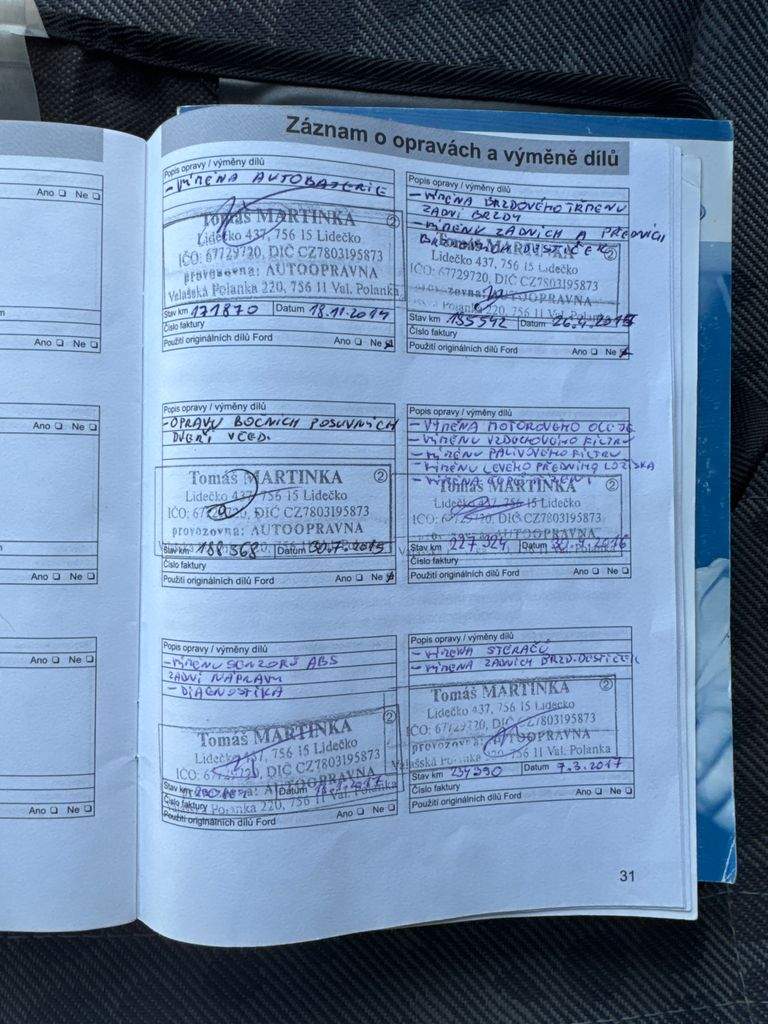 Záznam o opravách a výměně dílů
Popis opravy / výměny dílů
- VÝMĚNA AUTOBATERIE
Tomáš MARTINKA
Lidečko 437, 756 15 Lidečko
IČO: 67729720, DIČ CZ7803195873
provozovna: AUTOOPRAVNA
Valašská Polanka 220, 756 11 Val. Polanka
Stav km 171870 Datum 18.11.2014
Číslo faktury
Použití originálních dílů Ford Ano Ne
Popis opravy / výměny dílů
- VÝMĚNA BRZDOVÉHO TŘMENU
ZADNÍ BRZDY
- VÝMĚNU ZADNÍCH A PŘEDNÍCH
Tomáš MARTINKA ②
Lidečko 437, 756 15 Lidečko
IČO: 67729720, DIČ CZ7803195873
provozovna: AUTOOPRAVNA
Polanka 220, 756 11 Val. Polanka
Stav km 185542 Datum
Číslo faktury
Použití originálních dílů Ford Ano Ne
Popis opravy / výměny dílů
- OPRAVU BOČNÍCH POSUVNÝCH
DVEŘÍ VZAD.
Tomáš MARTINKA ②
Lidečko 437, 756 15 Lidečko
IČO: 67729720, DIČ CZ7803195873
provozovna: AUTOOPRAVNA
Stav km 188368 Datum 30.7.2015
Číslo faktury
Použití originálních dílů Ford Ano Ne
Popis opravy / výměny dílů
- VÝMĚNA MOTOROVÉHO OLEJE
- VÝMĚNU VZDUCHOVÉHO FILTRU
- VÝMĚNU PALIVOVÉHO FILTRU
- VÝMĚNU LEVÉHO PŘEDNÍHO LOŽISKA
Tomáš MARTINKA ②
Lidečko 437, 756 15 Lidečko
IČO: 67729720, DIČ CZ7803195873
AUTOOPRAVNA
Stav km Datum
Číslo faktury
Použití originálních dílů Ford Ano Ne
Popis opravy / výměny dílů
- VÝMĚNU SENZORŮ ABS
ZADNÍ NÁPRAVY
- DIAGNOSTIKA
Tomáš MARTINKA ②
Lidečko 437, 756 15 Lidečko
IČO: 67729720, DIČ CZ7803195873
AUTOOPRAVNA
Stav km Datum
Polanka 220, 756 11 Val. Polanka
Číslo faktury
Použití originálních dílů Ford Ano Ne
Popis opravy / výměny dílů
- VÝMĚNA STĚRAČŮ
- VÝMĚNA ZADNÍCH BRZD.DESTIČEK
Tomáš MARTINKA ②
Lidečko 437, 756 15 Lidečko
IČO: 67729720, DIČ CZ7803195873
provozovna: AUTOOPRAVNA
Valašská Polanka 220, 756 11 Val. Polanka
Stav km 234390 Datum 7.3.2017
Číslo faktury
Použití originálních dílů Ford Ano Ne
31
Ano Ne
Ano Ne
Ano Ne
Ano Ne
Ano Ne
Ano Ne